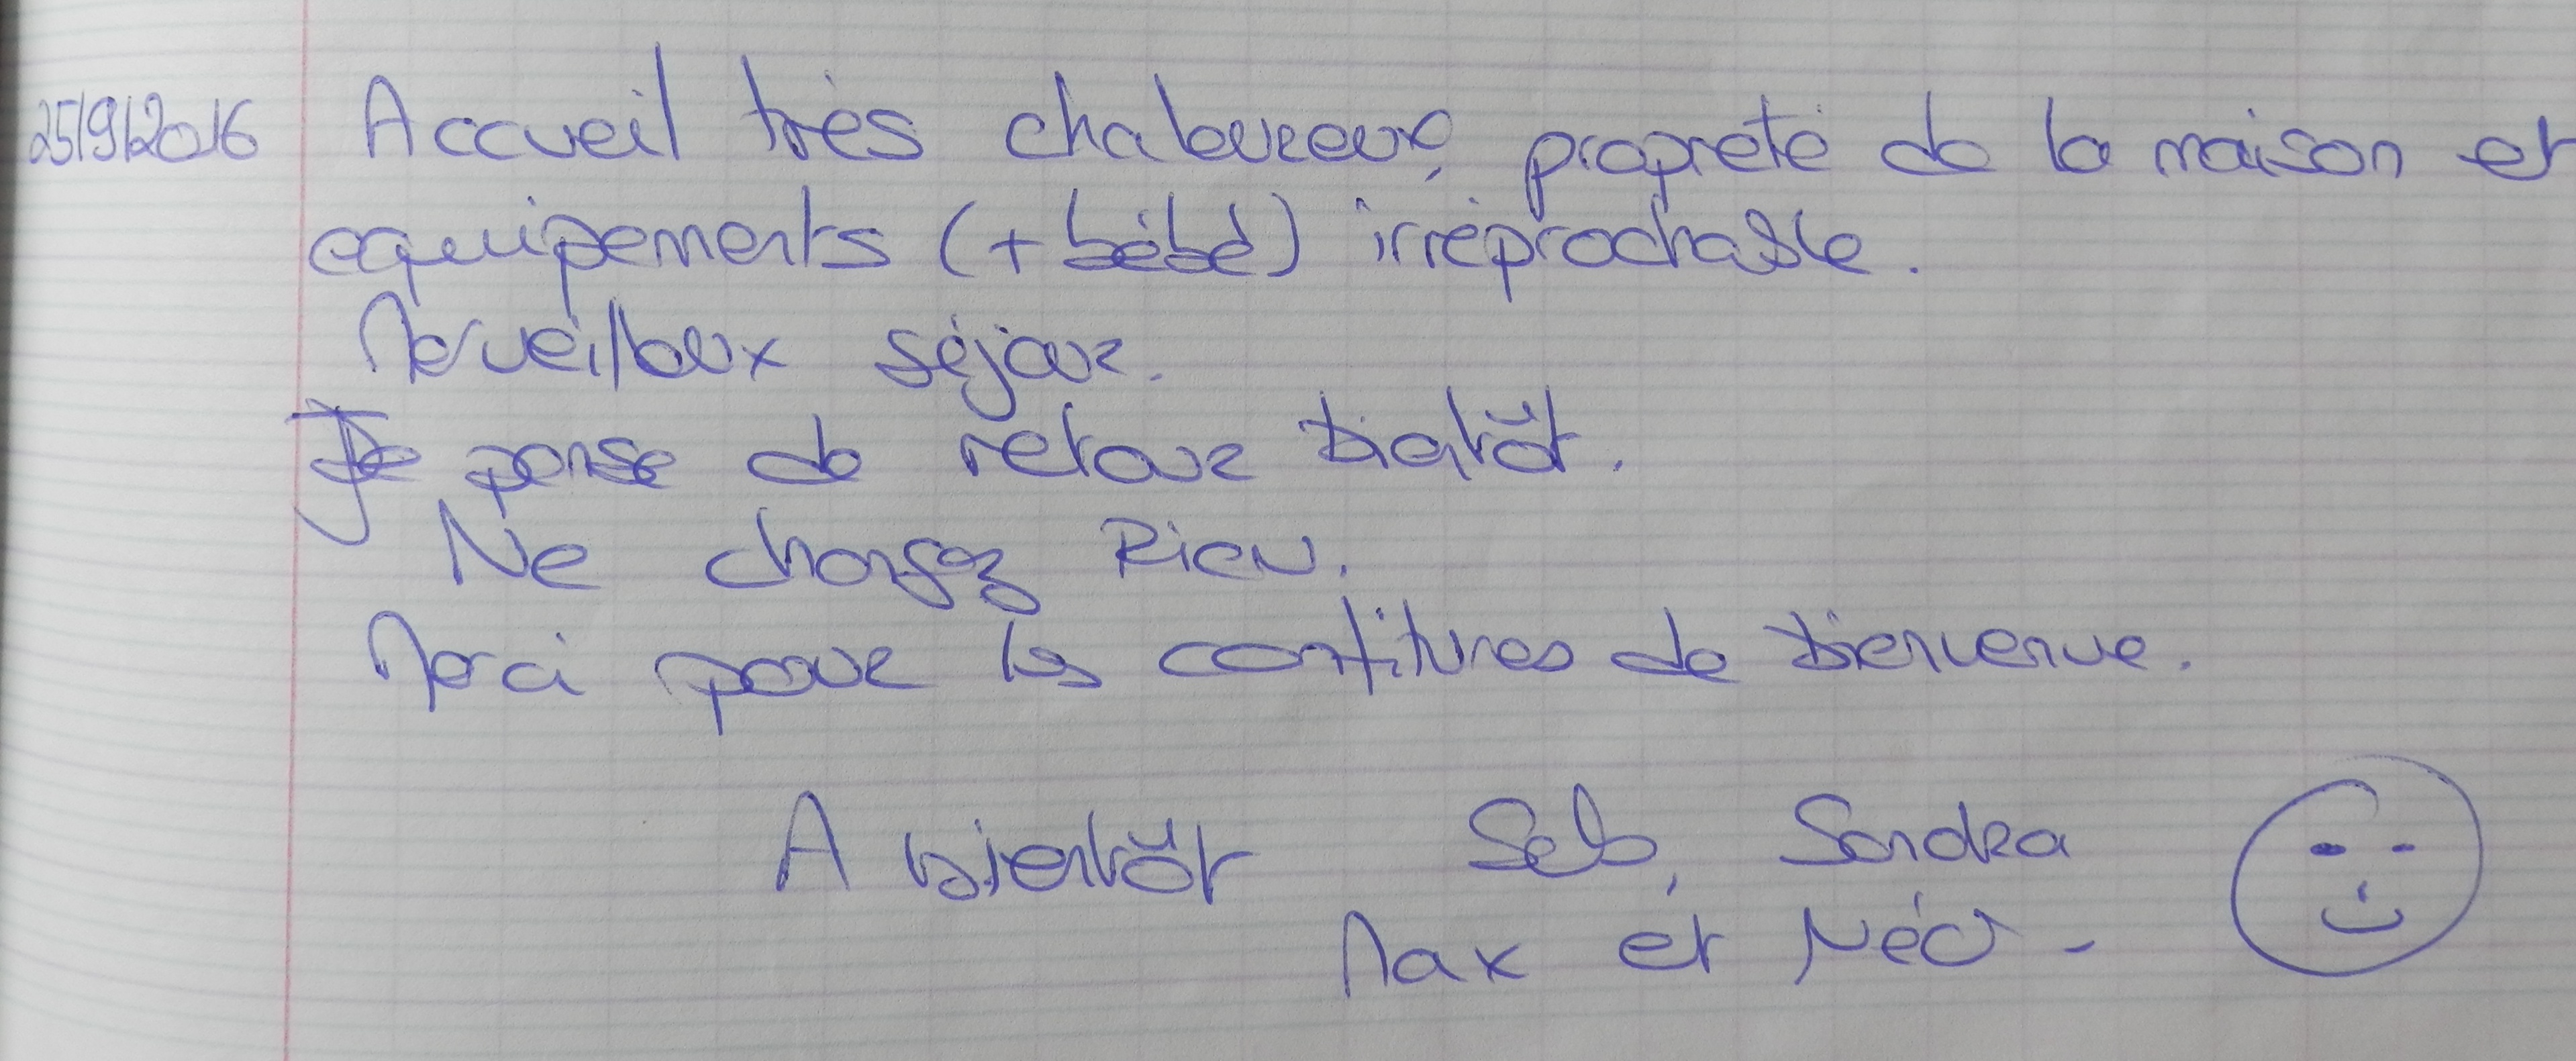 25/9/2016 Accueil très chaleureux, propreté de la maison et
équipements (+ bébé) irréprochable.
Merveilleux séjour.
Je pense de retour bientôt.
Ne changez Rien.
Merci pour les confitures de bienvenue.
A bientôt Seb, Sandra
Max et Néo -